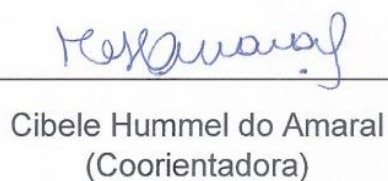 Cibele Hummel do Amaral
(Coorientadora)